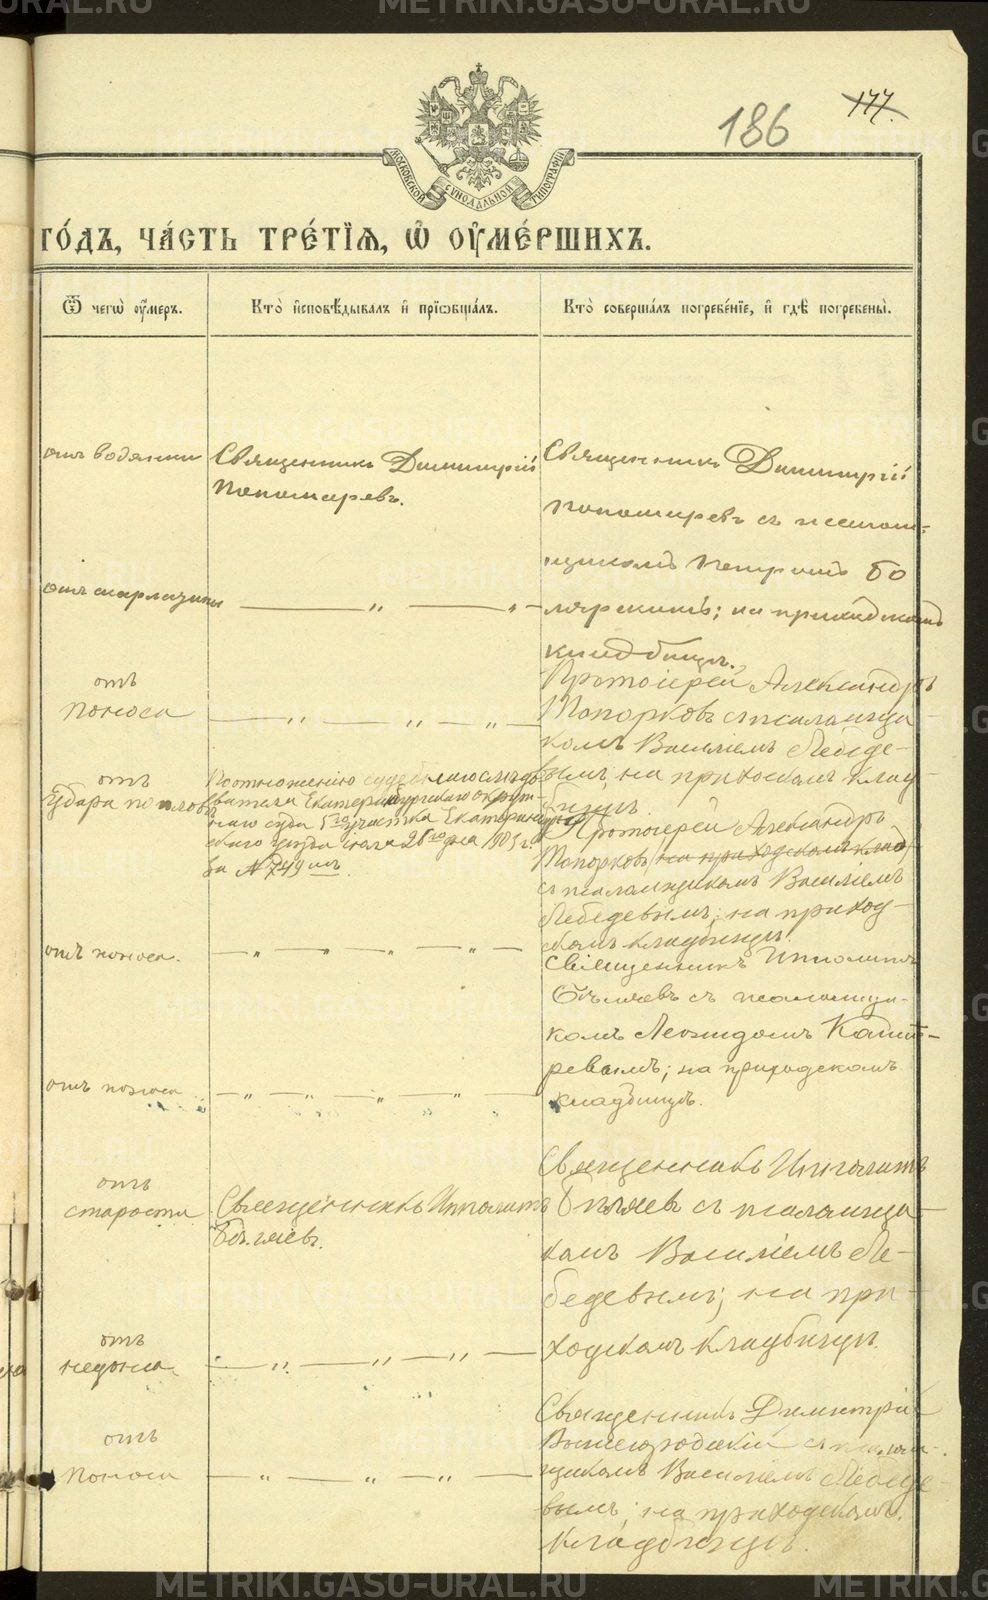 METRIKI.GASO-URAL.RU
186
177.
МОСКОВСКОЙ СѴНОДАЛЬНОЙ ТИПОГРАФІИ
ГО́ДЪ, ЧА́СТЬ ТРЕ́ТІѦ, Ѡ҆ ОУ҆МЕ́РШИХЪ.
Ѿ чегѡ̀ оу҆́меръ.
Кто̀ и҆сповѣ́дывалъ и҆ прїѡбща́лъ.
Кто̀ соверша́лъ погребе́нїе, и҆ гдѣ̀ погребены̀.
отъ водянки
Священникъ Димитрій
Пономаревъ.
Священникъ Димитрій
Пономаревъ съ псалом-
щикомъ Петромъ Бо
лярскимъ; на приходскомъ
кладбищѣ.
отъ скарлатины
— „ — „ —
отъ
поноса
— „ — „ — „ —
Протоіерей Александръ
Топорковъ съ псаломщи-
комъ Василіемъ Лебеде-
вымъ; на приходскомъ клад-
бищѣ
отъ
удара по головѣ
По отношенію судебнаго слѣдо
вателя Екатеринбургскаго окруж-
наго суда 5го участка Екатеринбург
скаго уѣзда іюля 26го дня 1903 г.
за № 749 мъ.
Протоіерей Александръ
Топорковъ на приходскомъ клад
съ псаломщикомъ Василіемъ
Лебедевымъ; на приход-
скомъ кладбищѣ.
отъ поноса.
— „ — „ — „ — „ —
Священникъ Ипполитъ
Бѣляевъ съ псаломщи-
комъ Леонидомъ
ревымъ; на приходскомъ
кладбищѣ.
отъ поноса
— „ — „ — „ — „ —
отъ
старости
Священникъ Ипполитъ
Бѣляевъ.
Священникъ Ипполитъ
Бѣляевъ съ псаломщи-
комъ Василіемъ Ле-
бедевымъ; на при-
ходскомъ кладбищѣ.
отъ
недоно-
— „ — „ — „ —
отъ
поноса
— „ — „ — „ —
Священникъ Димитрій
съ псалом-
щикомъ Василіемъ Лебеде-
вымъ; на приходскомъ
кладбищѣ.